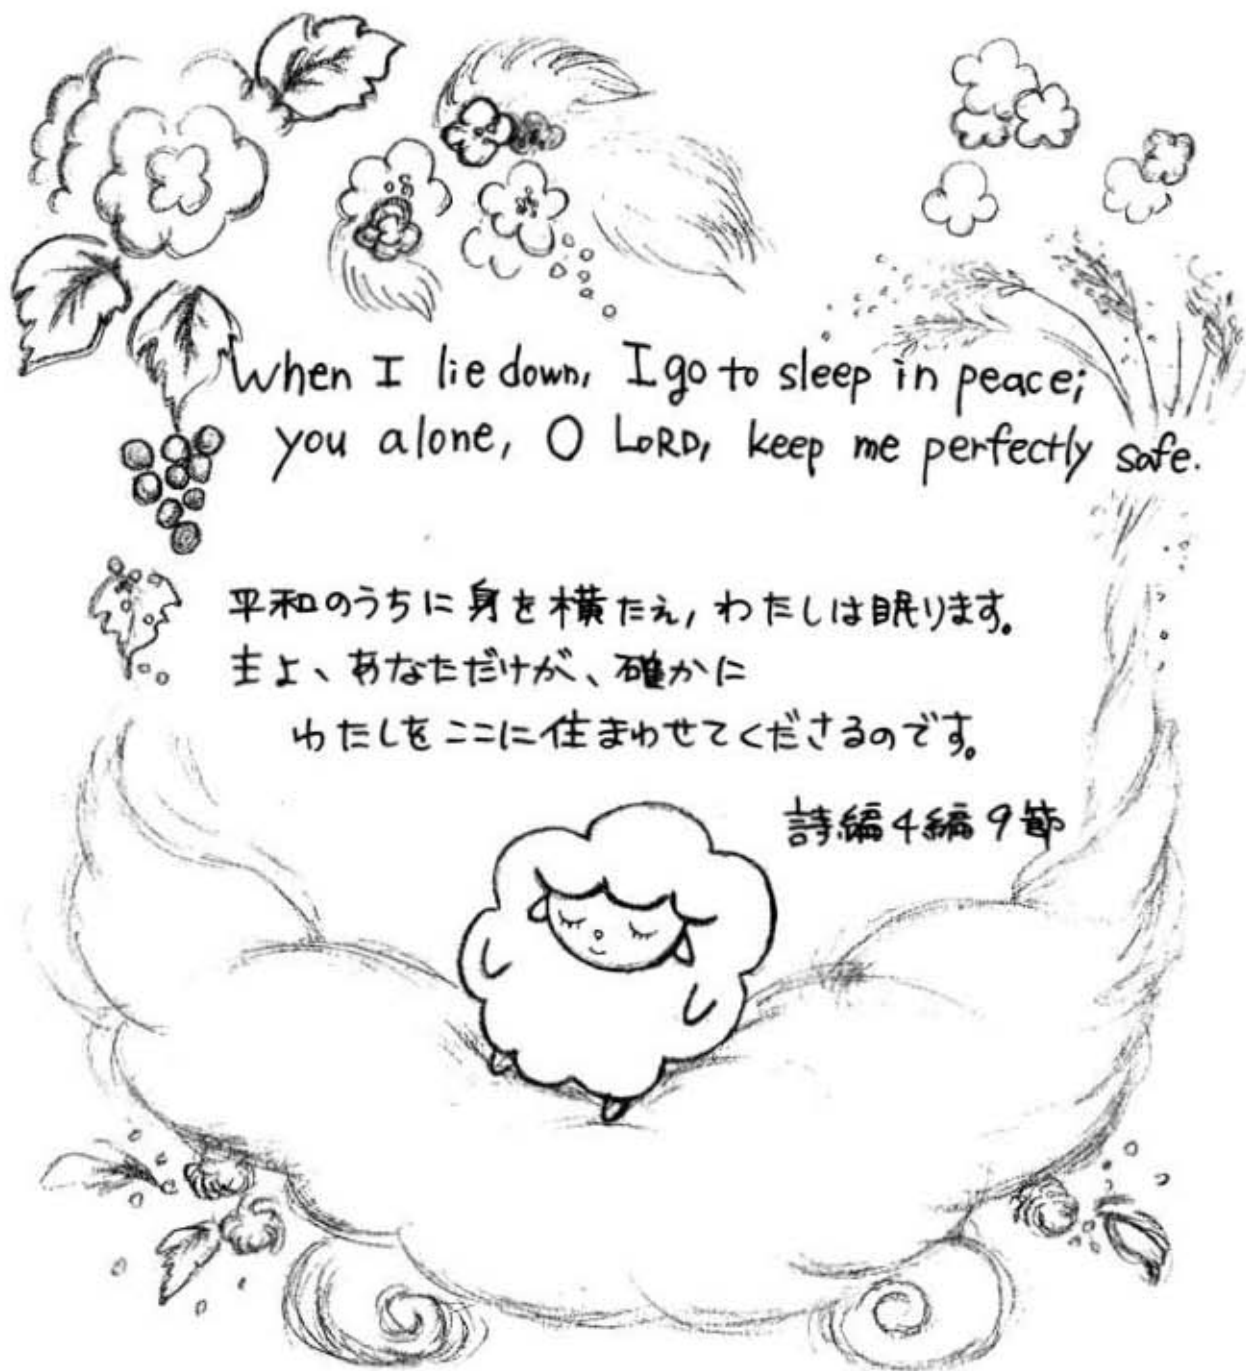 When I lie down, I go to sleep in peace;
you alone, O LORD, keep me perfectly safe.
平和のうちに身を横たえ, わたしは眠ります。
主よ、あなただけが、確かに
わたしをここに住まわせてくださるのです。
詩編4編9節